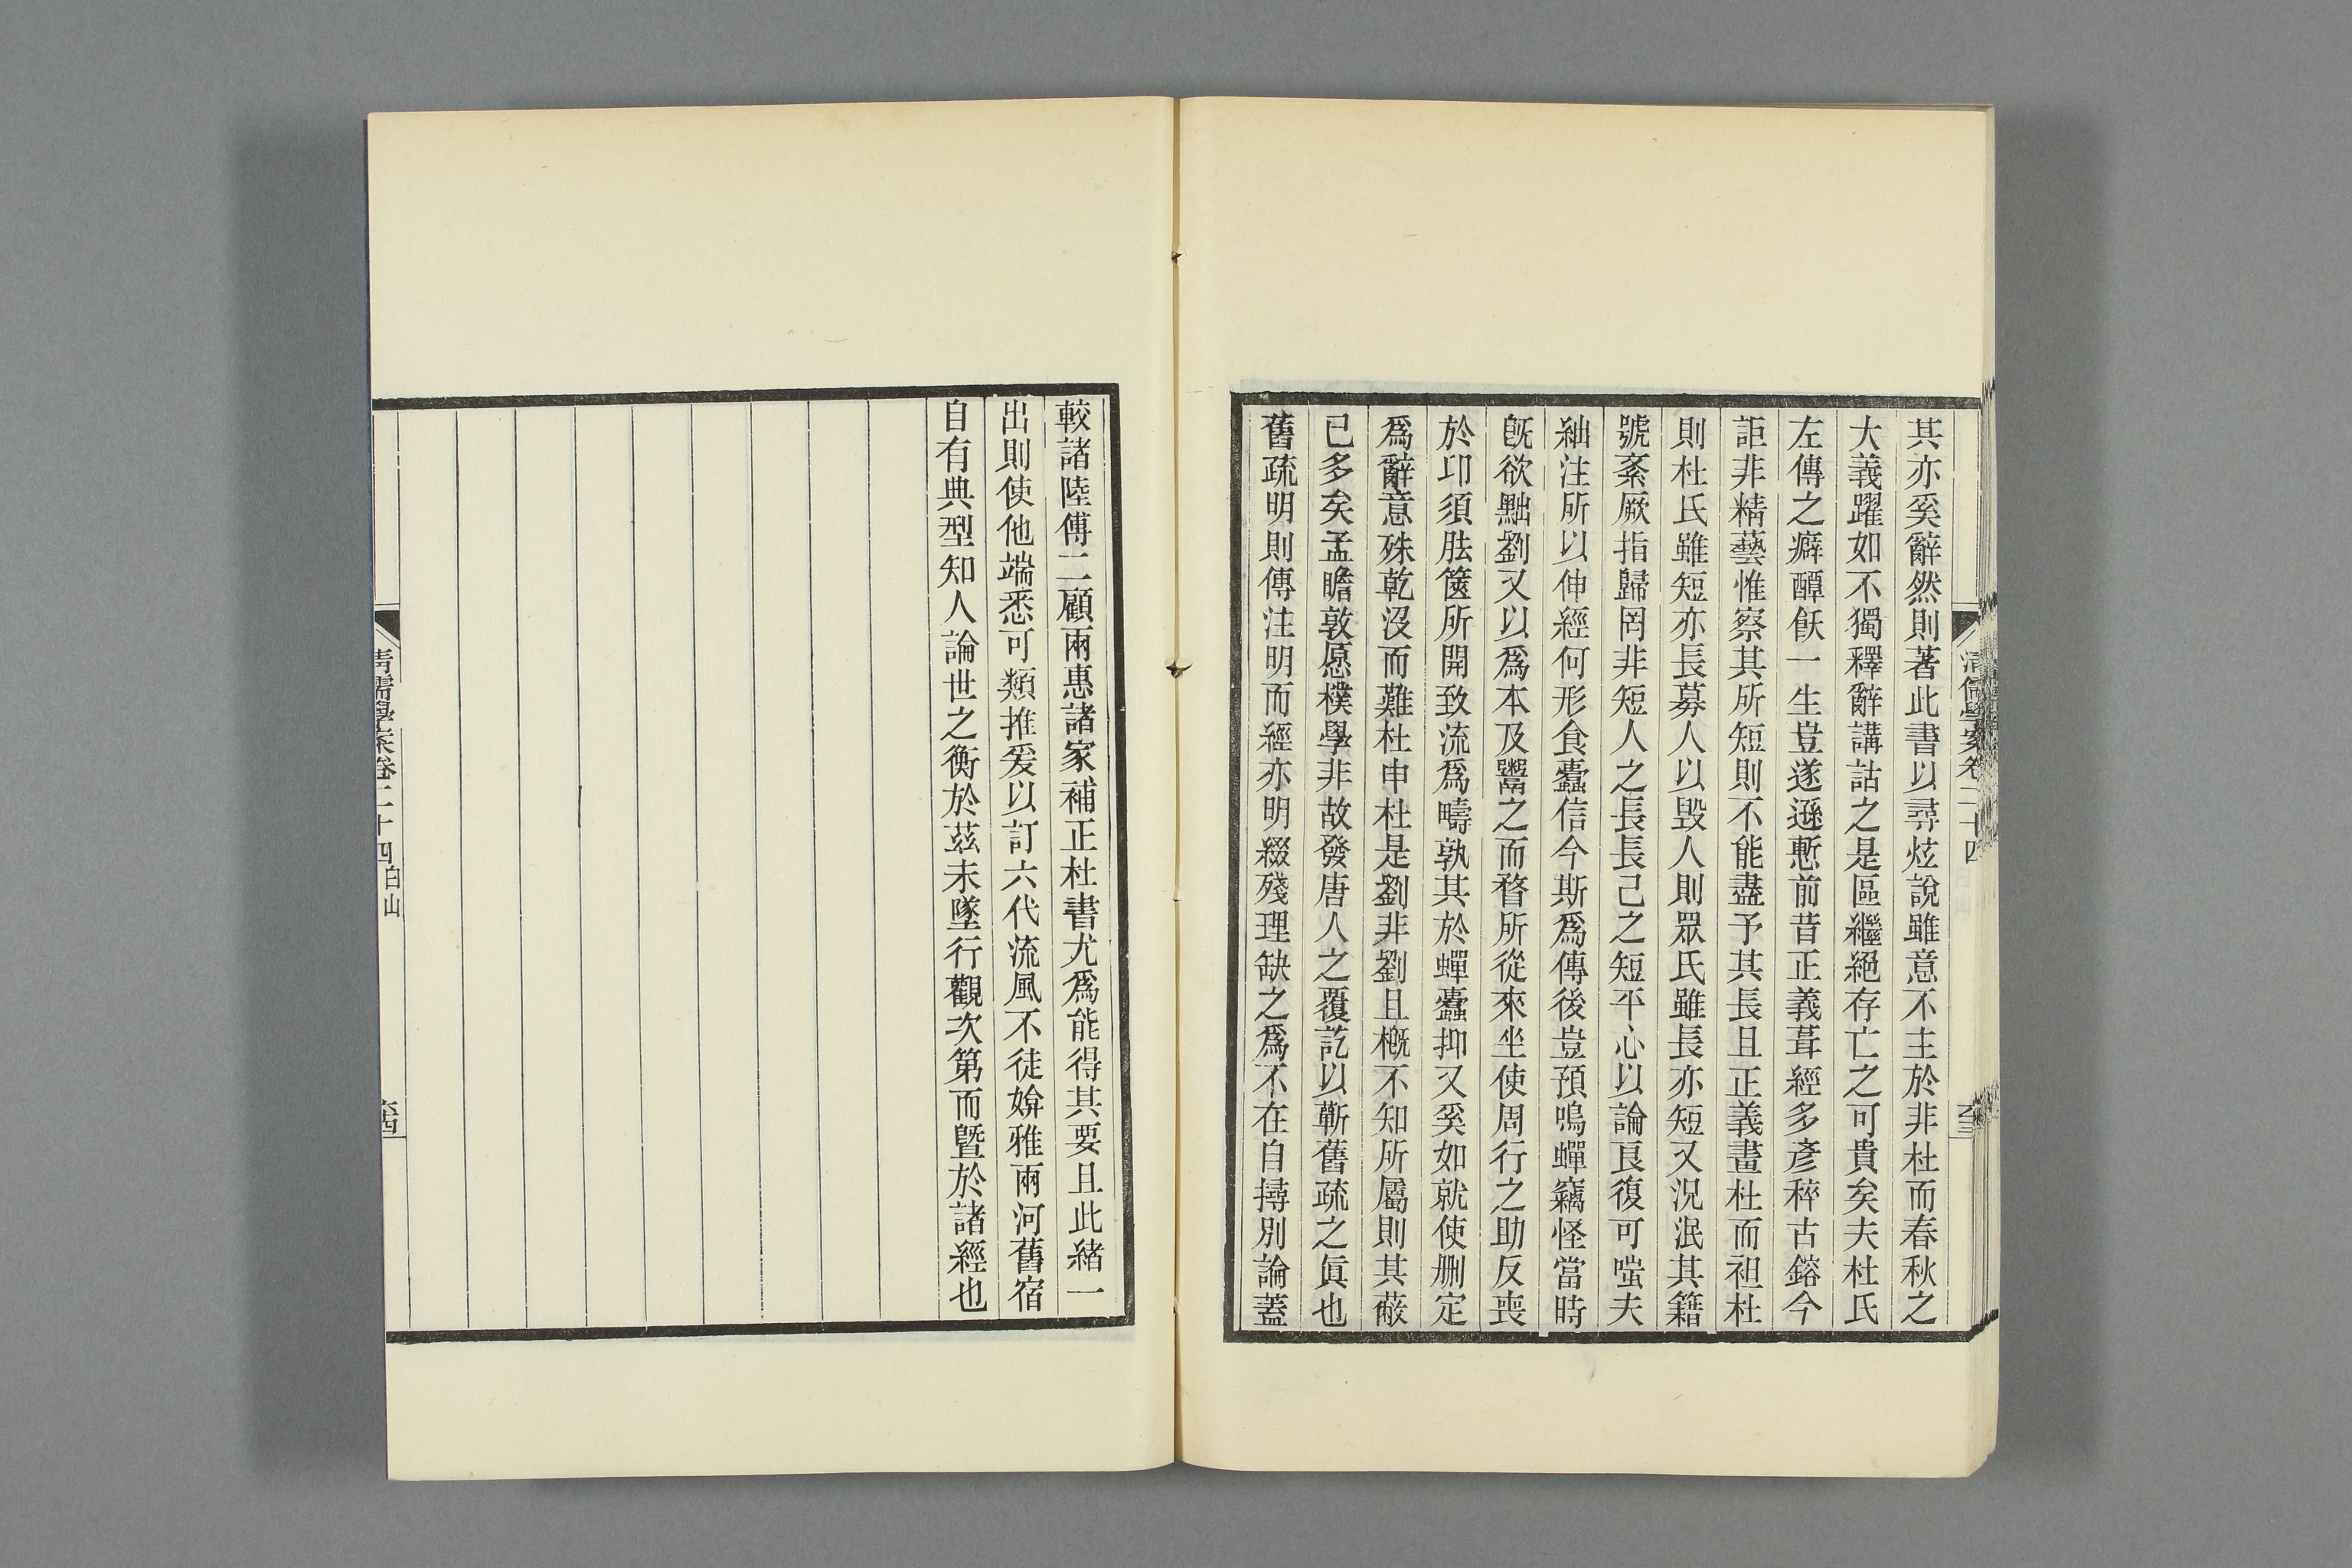 其亦奚辭然則著此書以尋炫說雖意不主於非杜而春秋之
大義躍如不獨釋辭講詁之是區繼絕存亡之可貴矣夫杜氏
左傳之癖醰飫一生豈遂遜慙前昔正義葺經多彥稡古鎔今
詎非精藝惟察其所短則不能盡予其長且正義畫杜而袒杜
則杜氏雖短亦長募人以毀人則眾氏雖長亦短又況泯其籍
號紊厥指歸罔非短人之長長己之短平心以論良復可嗤夫
紬注所以伸經何形食蠹信今斯爲傳後豈預鳴蟬竊怪當時
旣欲黜劉又以爲本及鬻之而瞀所從來坐使周行之助反喪
於卬須胠篋所開致流爲疇孰其於蟬蠹抑又奚如就使刪定
爲辭意殊乾沒而難杜申杜是劉非劉且概不知所屬則其蔽
已多矣孟瞻敦愿樸學非故發唐人之覆訖以蘄舊疏之眞也
舊疏明則傳注明而經亦明綴殘理缺之爲不在自撏別論蓋
清儒學案卷二十四
較諸陸傅二顧兩惠諸家補正杜書尤爲能得其要且此緒一
出則使他端悉可類推爰以訂六代流風不徒媕雅兩河舊宿
自有典型知人論世之衡於茲未墜行觀次第而曁於諸經也
清儒學案卷二十四 白山